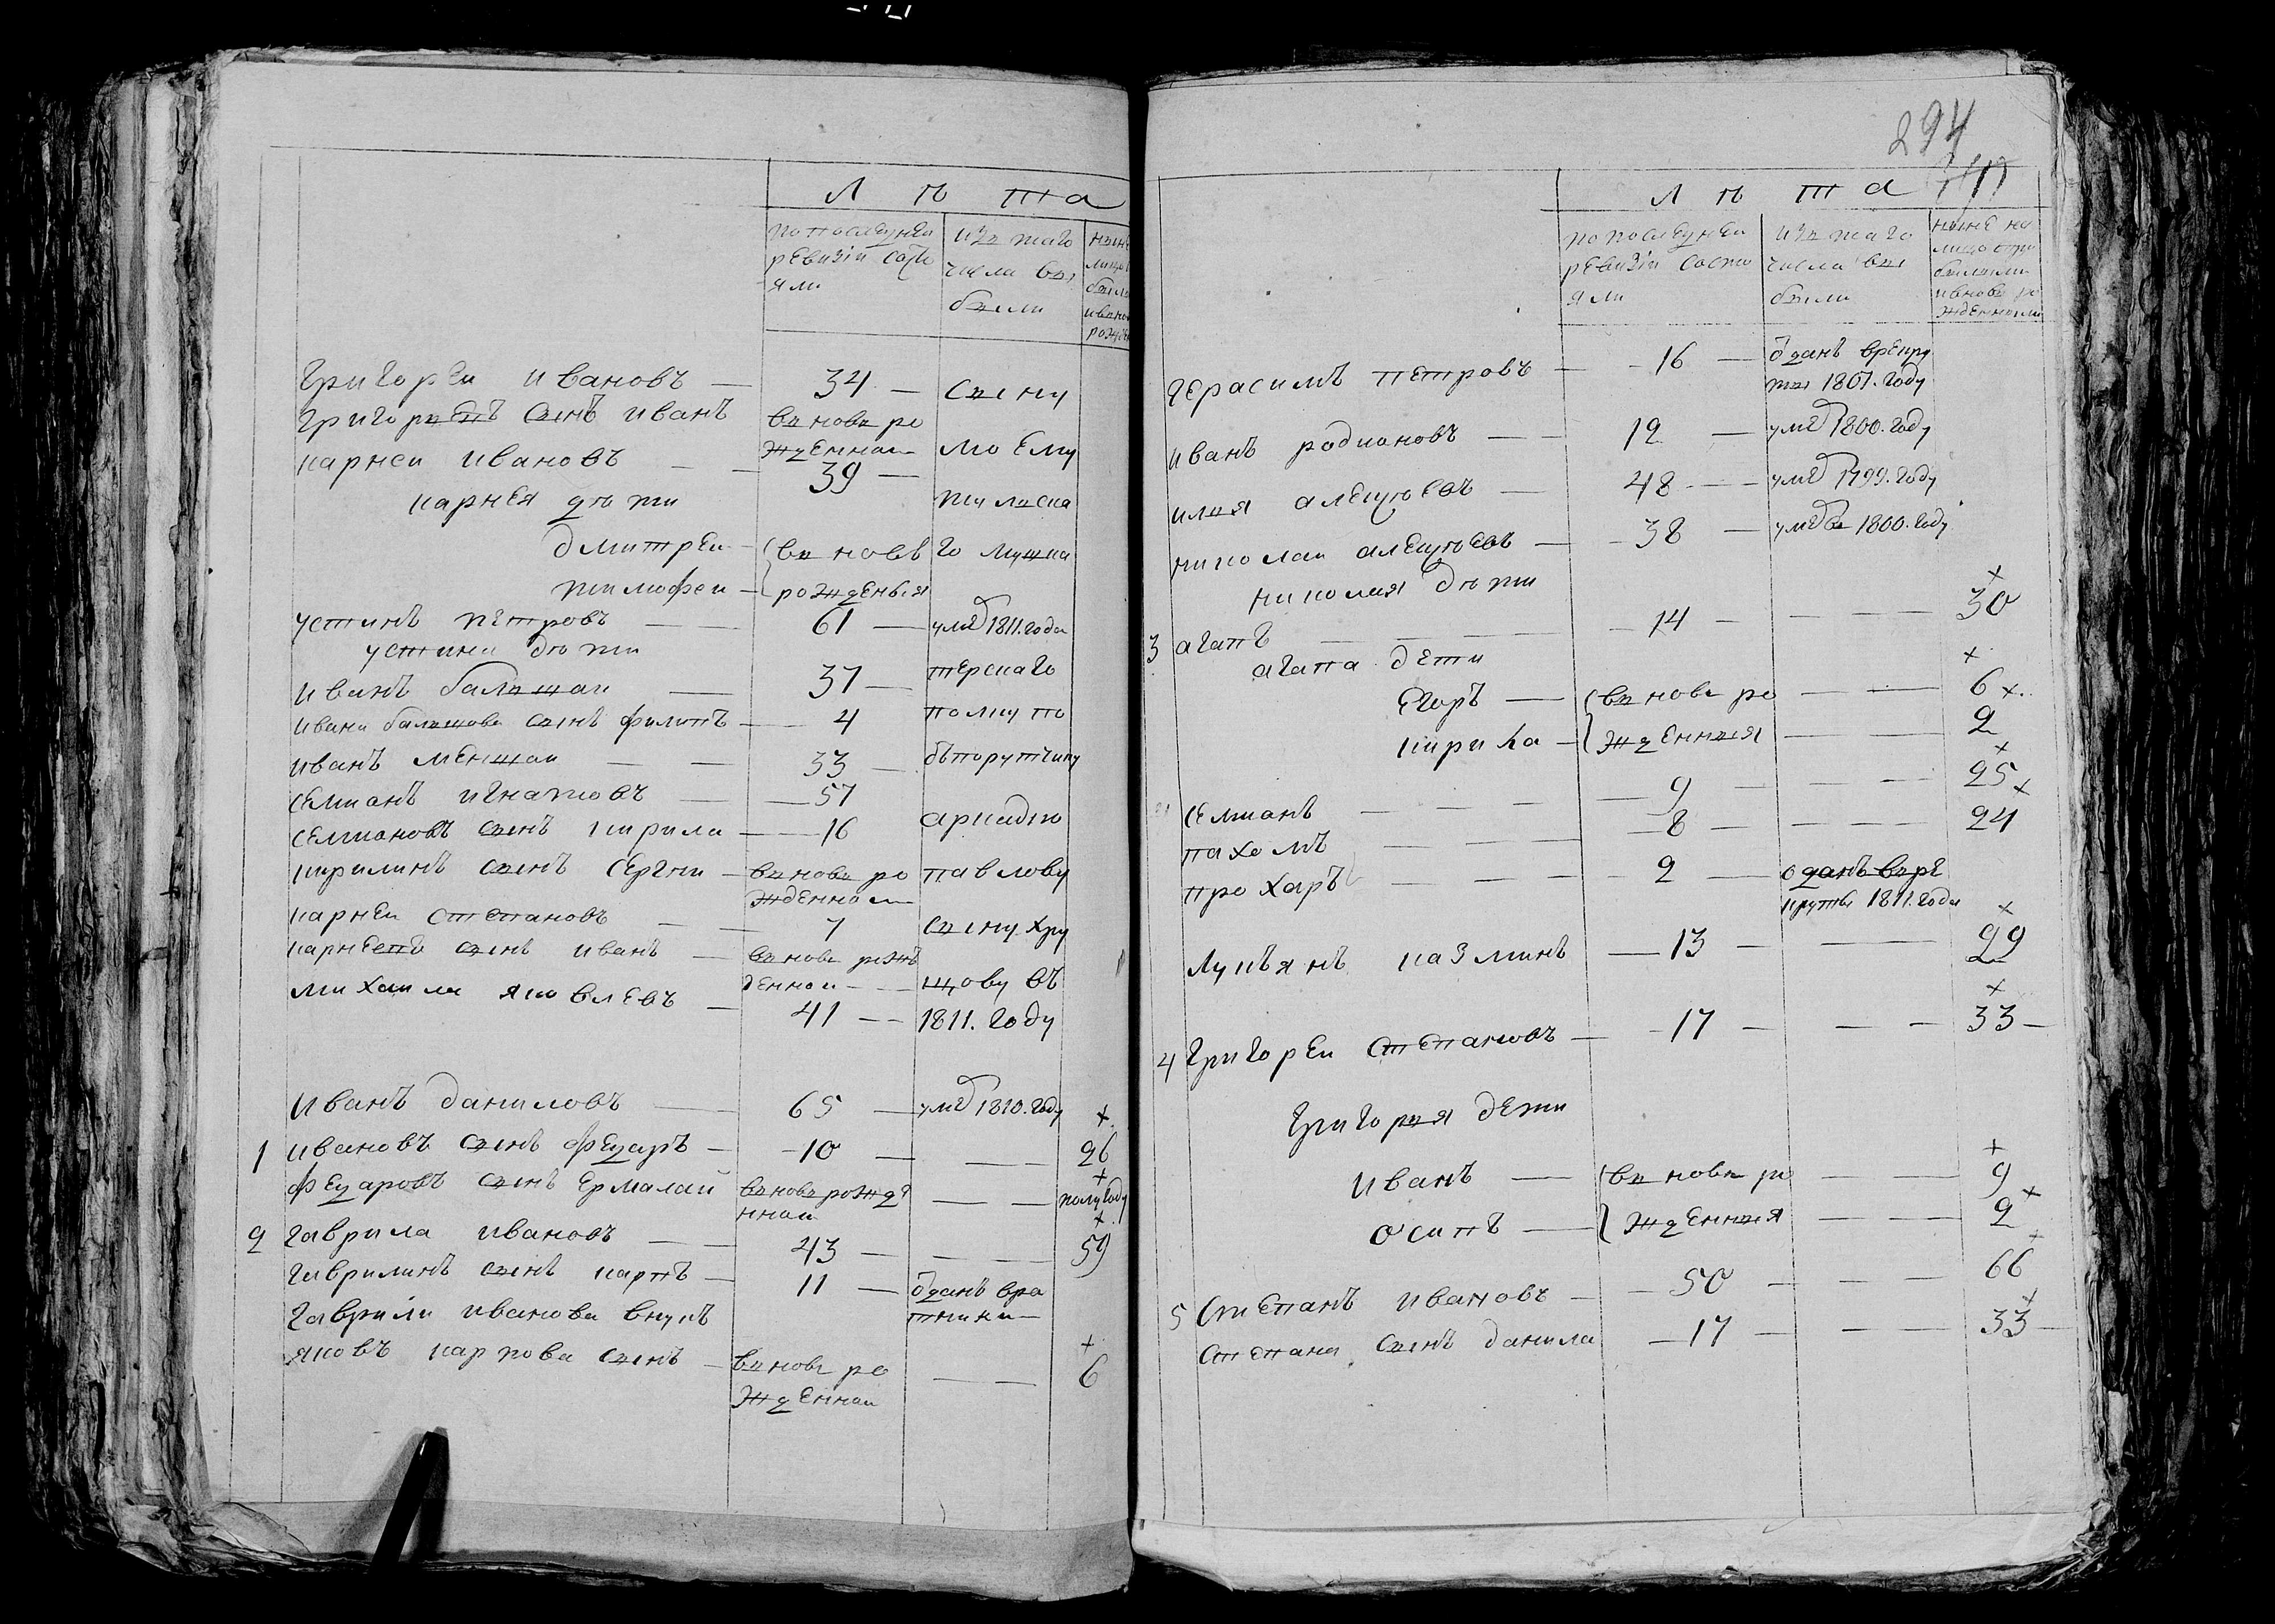 Л ѣ та
по последнеи
ревизіи состо
яли
изъ таго
числа вы
были
григореи ивановъ — 34 — сыну
григорьевъ сынъ иванъ вновь ро
жденнои моему
карнеи ивановъ — — 39 —
карнея дѣти
дмитреи — вновь
тимофеи — рожденыя
устинъ петровъ — — 61 — умѣ 1811. года
устина дѣти
иванъ балшои — 37 — терскаго
ивана балшова сынъ филипъ — 4 полку по
иванъ меншои — — 33 — дпорутчику
семионъ игнатовъ — 57
семионовъ сынъ кирила — 16 аркадію
кирилинъ сынъ сергѣи — вновь ро павлову
жденнои
карнеи степановъ — — 7 сыну хру
карнеевъ сынъ иванъ — вновь рожъ
деннои — щову въ
михаила яковлевъ — 41 — 1811. году
иванъ даниловъ — 65 — умѣ 1810. году
1 ивановъ сынъ федаръ — 10 — — 26
федаровъ сынъ ермалаи вновь рожде
ннои — — полугоду
2 гаврила ивановъ — 43 — — 59
гаврилинъ сынъ карпъ — 11 — отданъ вра
тники
гаврилы иванова внукъ
яковъ карпова сынъ — вновь ро — 6
жденнои
294
Л ѣ т а
по последнеи
ревизіи состо
яли
изъ таго
числа вы
были
ныне на
лицо
и вновь ро
жденными
герасимъ петровъ — 16 — отданъ врекру
ты 1807. году
иванъ родионовъ — — 12 — умѣ 1800. году
илья алексѣевъ — 48 — умѣ 1799. году
николаи алексѣевъ — 38 — умѣ 1800. году
николая дѣти
3 агапъ — — — 14 — — — 30
агапа дети
егоръ — вновь ро — — 6
кирила — жденныя — — 2
семионъ — — — 9 — — — 25
пахомъ — — — 8 — — — 24
прохаръ — — — 2 — отданъ врѣ
круты 1811. года
лукьянъ казминъ — 13 — — 29
4 григореи степановъ — 17 — — — 33 —
григорья дети
иванъ — вновь ро — — 9
осипъ — жденныя — — 2
5 степанъ ивановъ — 50 — — — 66
степана сынъ данила — 17 — — — 33 —